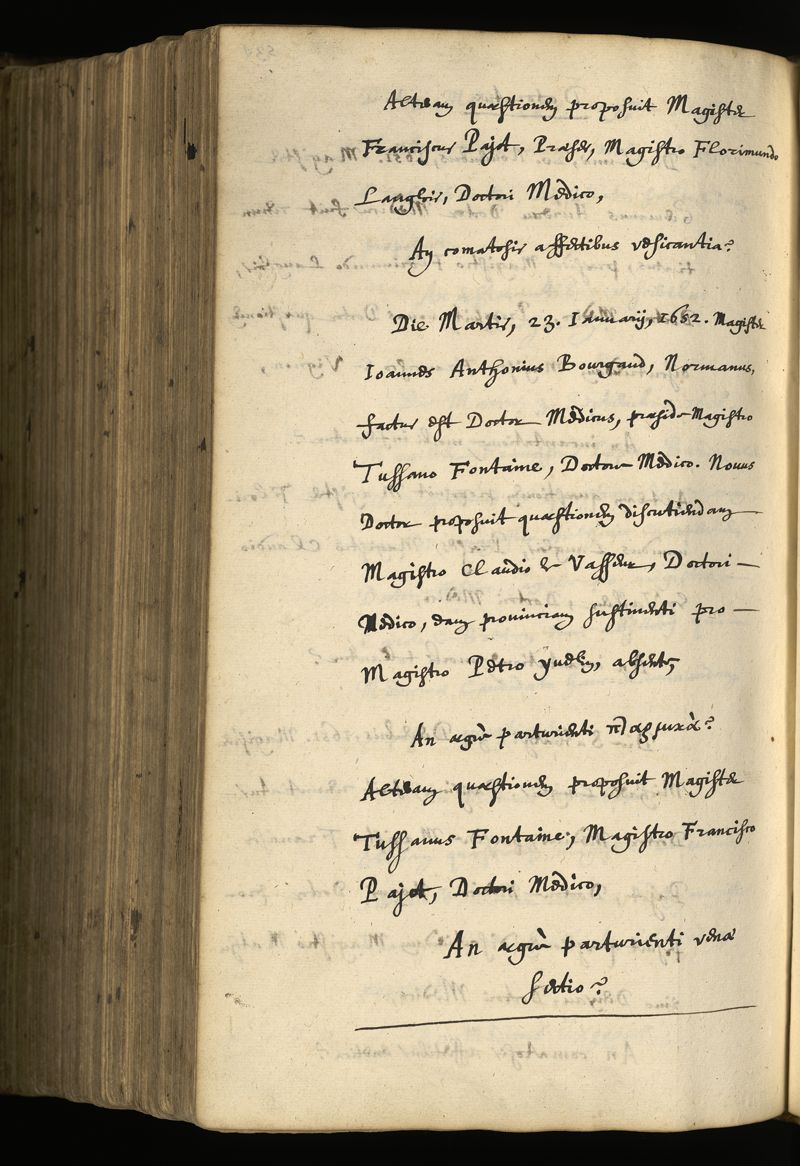 Alteram quæstionem proposuit Magister
Franciscus Pajot, Præses, Magistro Florimundo
Langlois, Doctori Medico,
An comatosis affectibus vesicantia?
Die Martis, 23. Ianuarij, 1652. Magister
Ioannes Anthonius Bourgaud, Normanus,
factus est Doctor Medicus, præside Magistro
Tussano Fontaine, Doctore Medico. Novus
Doctor proposuit quæstionem discutiendam
Magistro Claudio le Vasseur, Doctori
Medico, eam provinciam sustinenti pro
Magistro Petro yvelin, absente,
An ægrè parturienti
Alteram quæstionem proposuit Magister
Tussanus Fontaine, Magistro Francisco
Pajot, Doctori Medico,
An ægrè parturienti venæ
sectio?